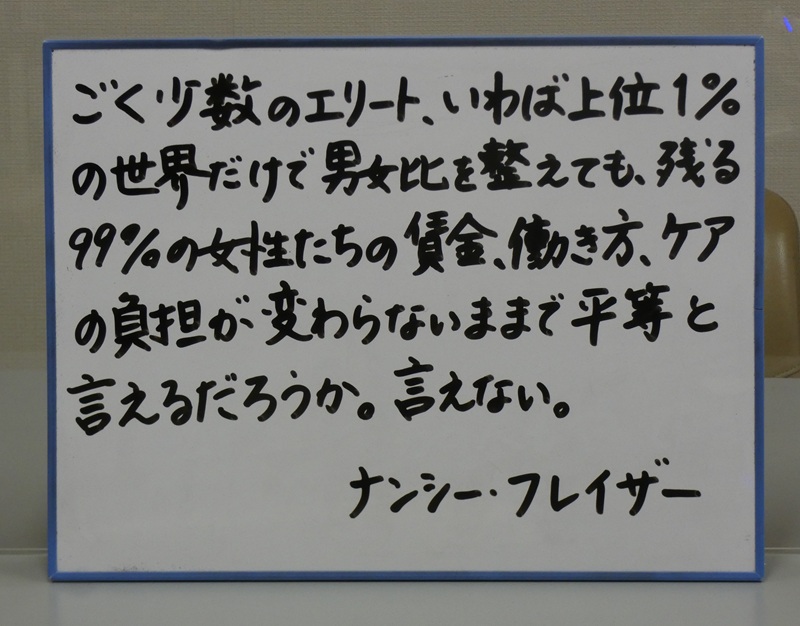 ごく少数のエリート、いわば上位1%
の世界だけで男女比を整えても、残る
99%の女性たちの賃金、働き方、ケア
の負担が変わらないままで平等と
言えるだろうか。言えない。
ナンシー・フレイザー